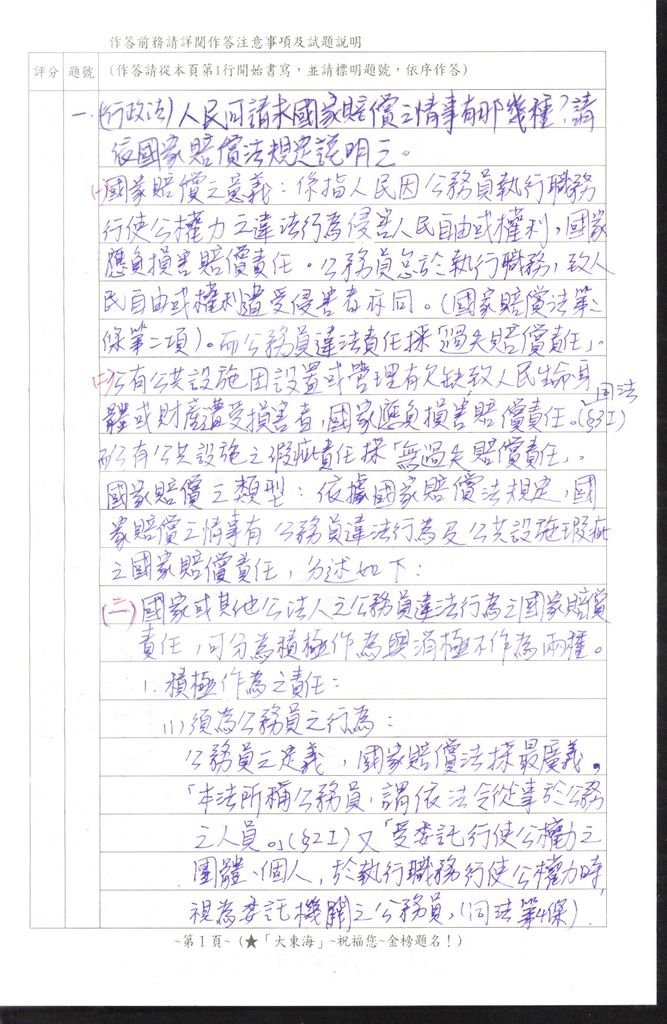 作答前務請詳閱作答注意事項及試題說明
評分 題號 (作答請從本頁第1行開始書寫,並請標明題號,依序作答)
一.(行政法)人民可請求國家賠償之情事有那幾種?請
依國家賠償法規定說明之。
(一)國家賠償之意義:係指人民因公務員執行職務
行使公權力之違法行為侵害人民自由或權利,國家
應負損害賠償責任。公務員怠於執行職務,致人
民自由或權利遭受侵害者亦同。(國家賠償法第二
條第二項)。而公務員違法責任採「過失賠償責任」。
(二)公有公共設施因設置或管理有欠缺致人民生命身
體或財產遭受損害者,國家應負損害賠償責任。(同法§3I)
而公有公共設施之瑕疵責任採「無過失賠償責任」。
國家賠償之類型:依據國家賠償法規定,國
家賠償之情事有公務員違法行為及公共設施瑕疵
之國家賠償責任,分述如下:
(二)國家或其他公法人之公務員違法行為之國家賠償
責任,可分為積極作為與消極不作為兩種。
1.積極作為之責任:
(1)須為公務員之行為:
公務員之定義,國家賠償法採最廣義。
「本法所稱公務員,謂依法令從事於公務
之人員。」(§2I)又「受委託行使公權力之
團體、個人,於執行職務行使公權力時,
視為委託機關之公務員,(同法第4條)
~第1頁~(★「大東海」~祝福您~金榜題名!)